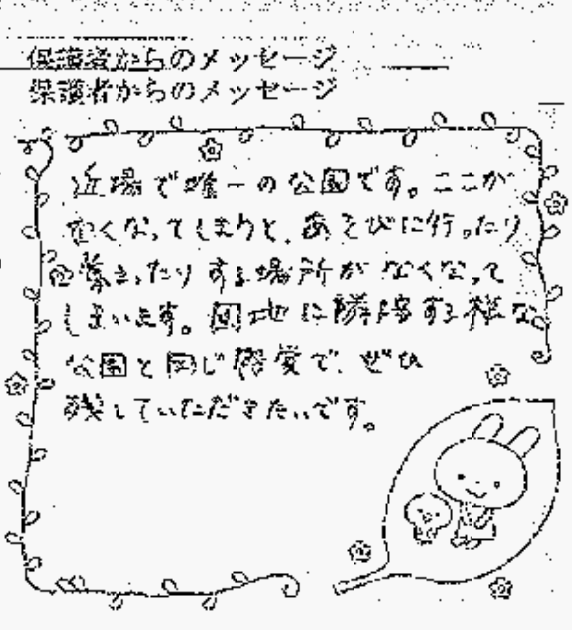 保護者からのメッセージ
保護者からのメッセージ
近場で唯一の公園です。ここが
なってしまうと、あそびに行ったり
したりする場所がなくなって
しまいます。団地に隣接する様な
公園と同じ感覚で、ぜひ
残していただきたいです。